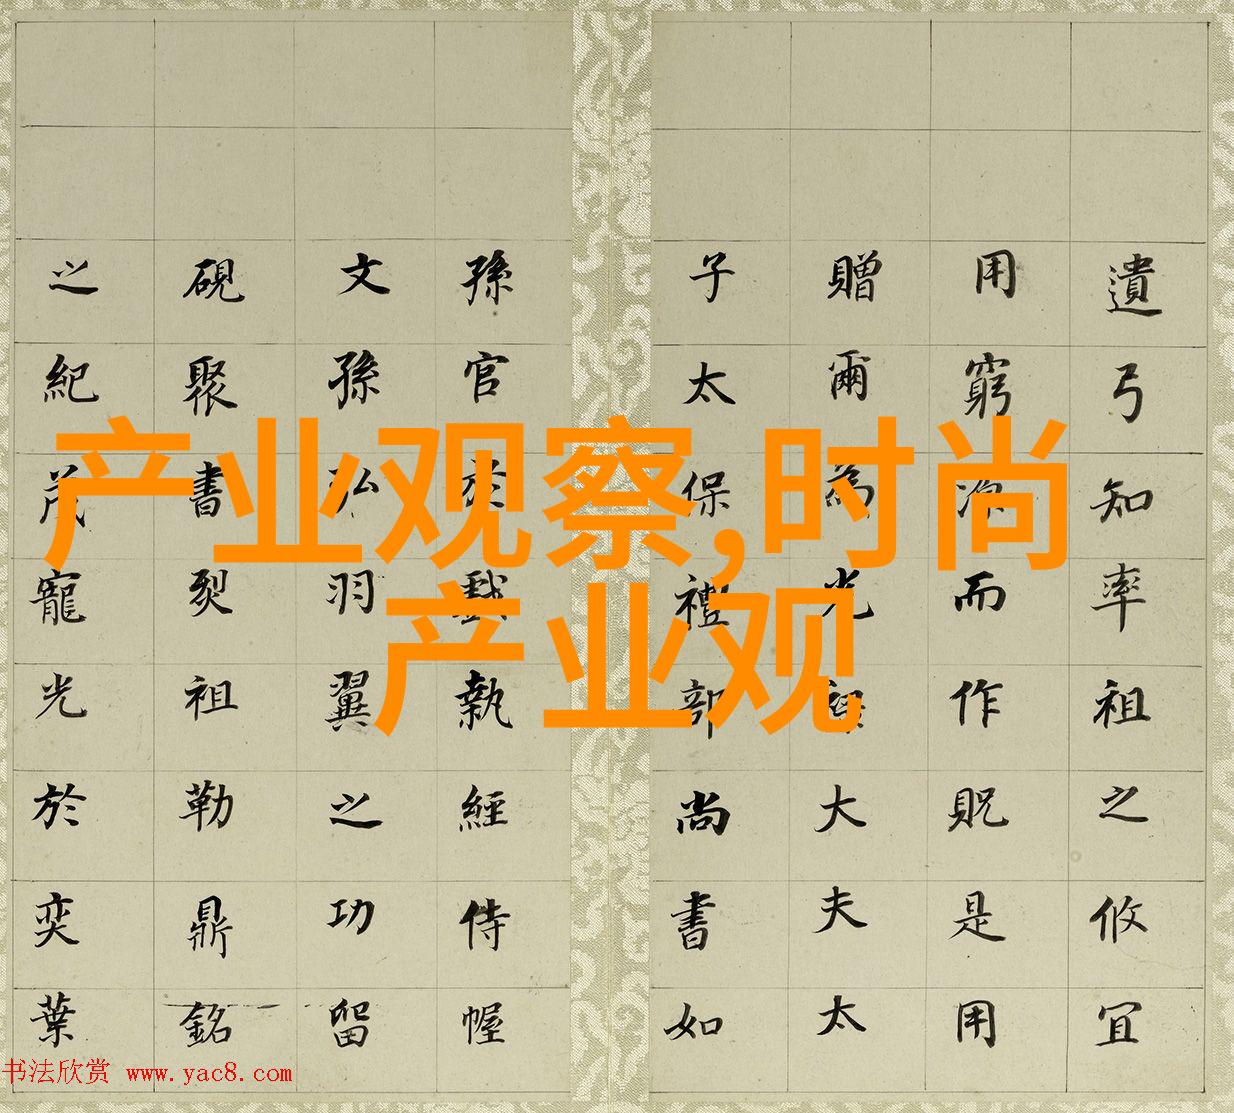 遺弓知率祖之攸宜
用窮而作貺是用
贈爾為光大夫太
子太保禮部尚書如
孫官於戲執經侍幄
文孫弘羽翼之功留
硯聚書裂祖勒鼎銘
之紀茂寵光於奕葉
产业观察,时尚
产业观
书法欣赏 www.yac8.com